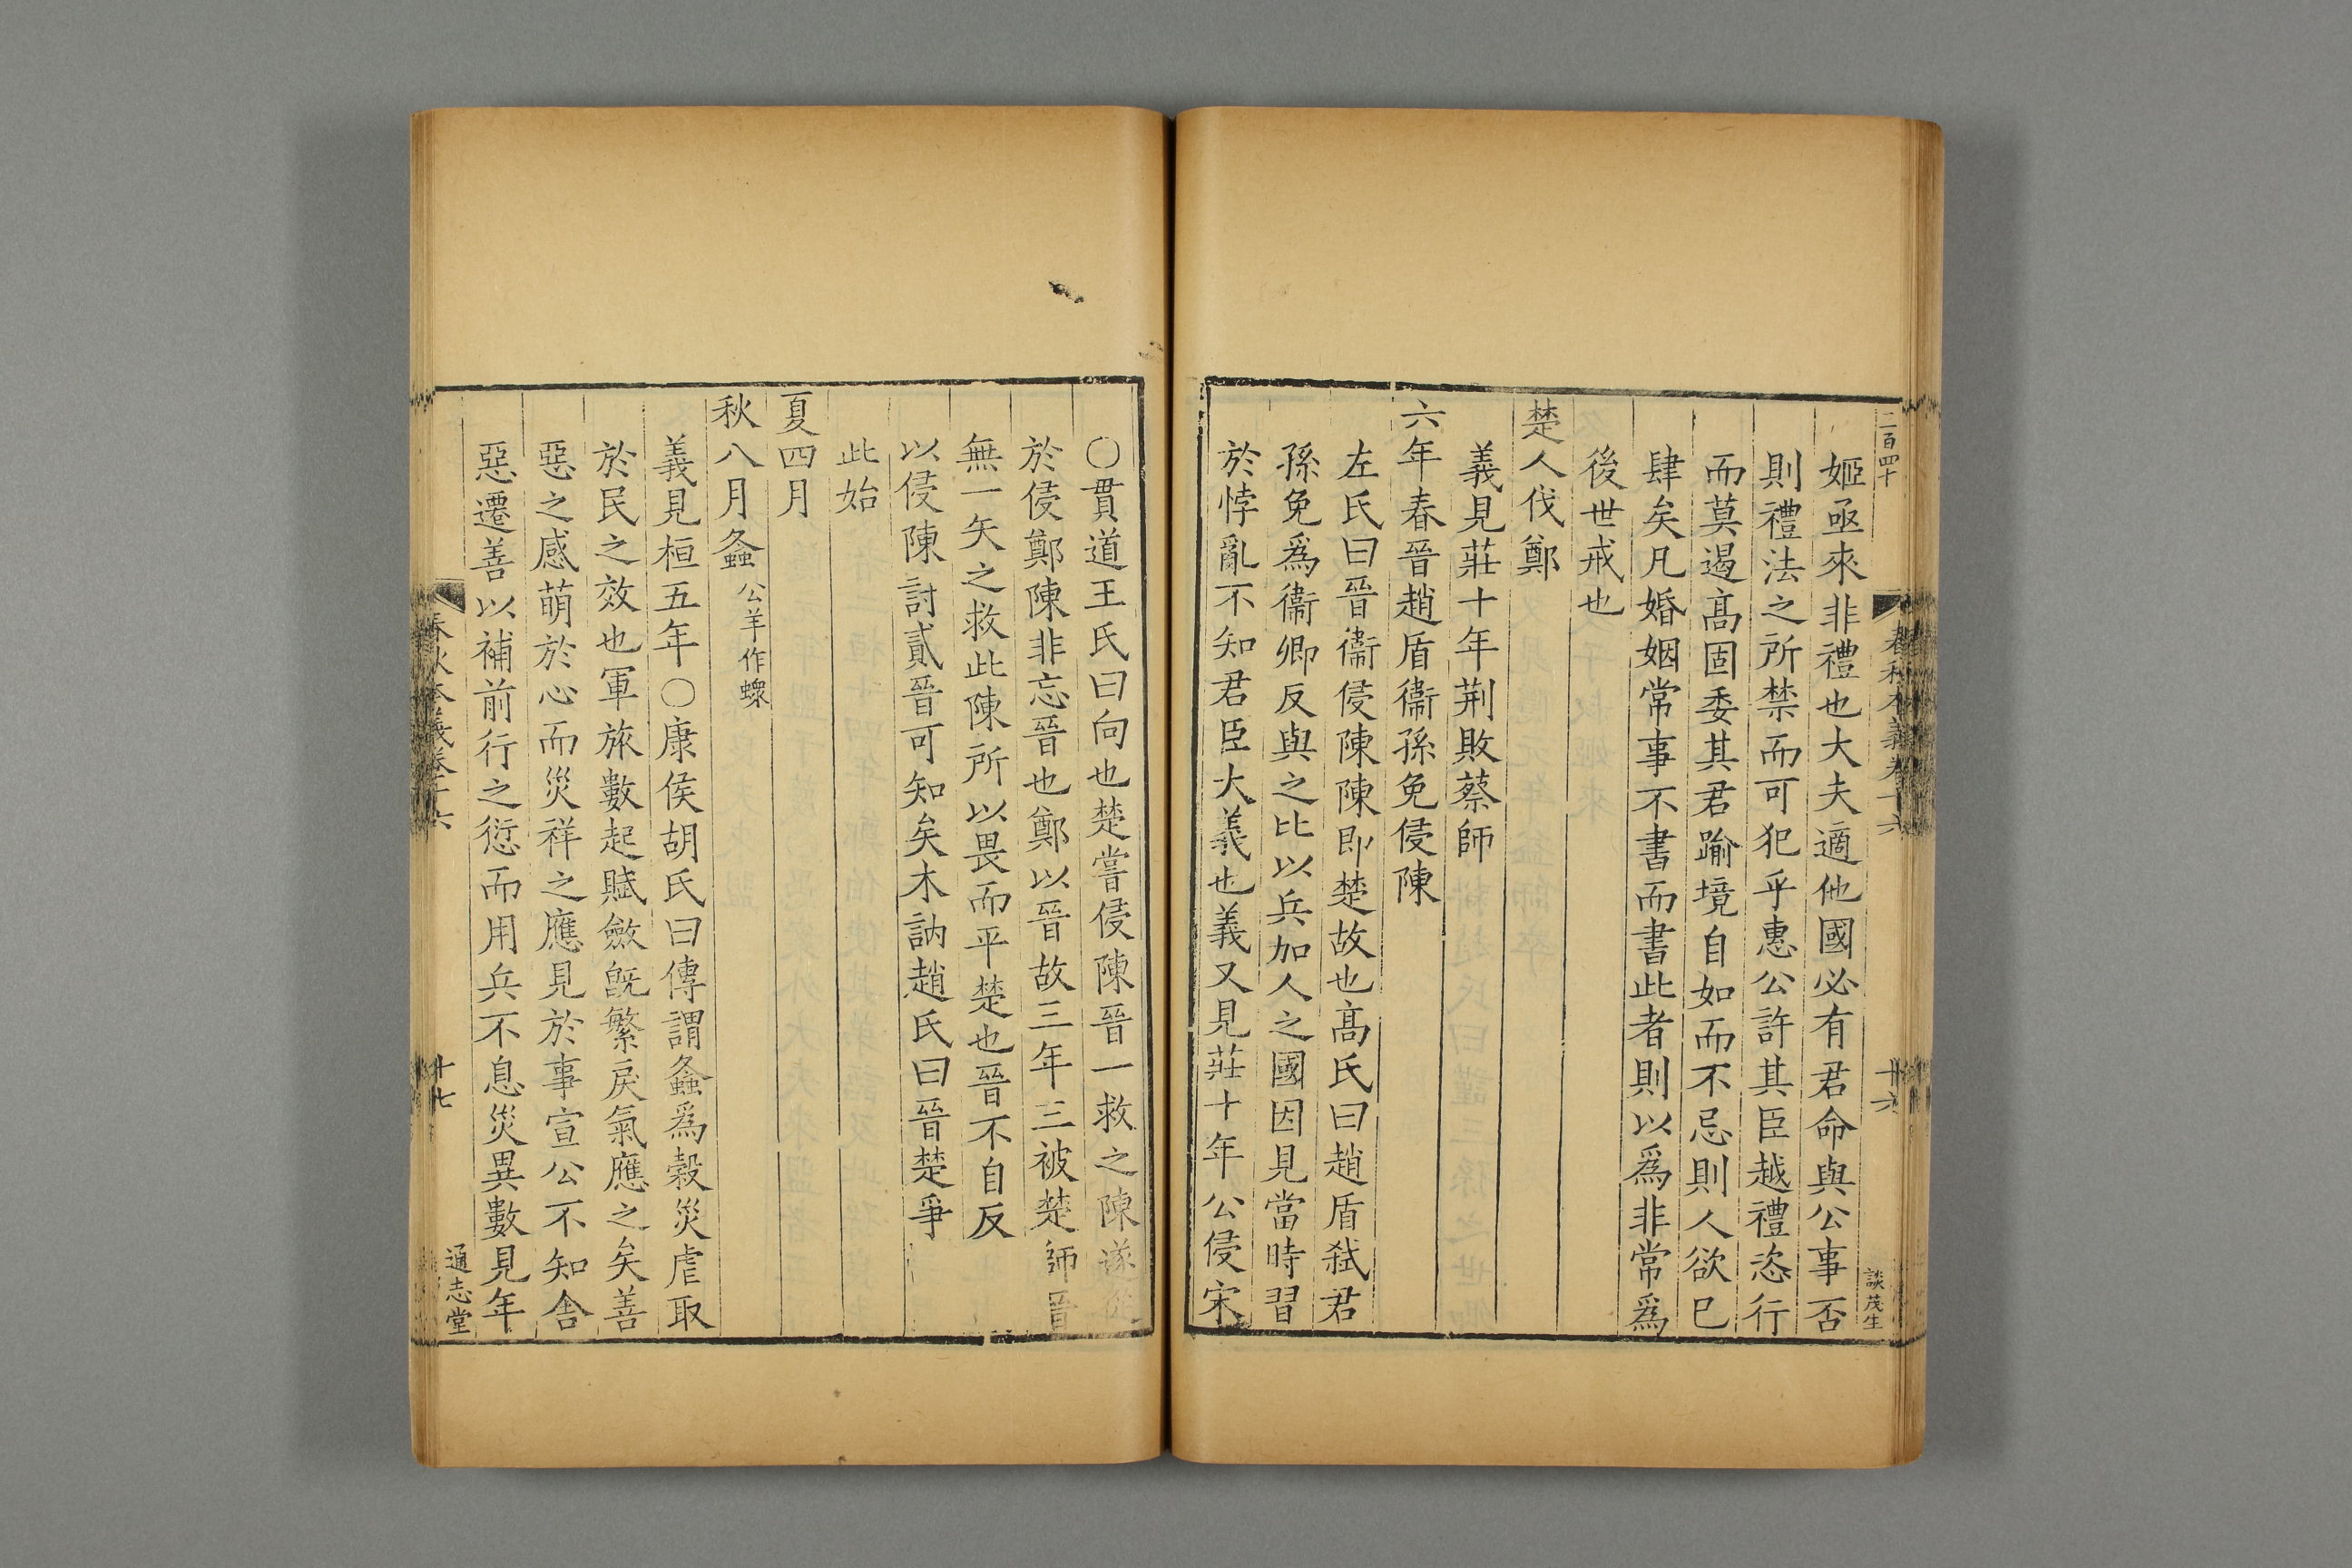 二百四十
春秋本義卷十六
十六
談茂生
姬亟來非禮也大夫適他國必有君命與公事否
則禮法之所禁而可犯乎惠公許其臣越禮恣行
而莫遏髙固委其君踰境自如而不忌則人欲已
肆矣凡婚姻常事不書而書此者則以爲非常爲
後世戒也
楚人伐鄭
義見莊十年荆敗蔡師
六年春晉趙盾衞孫免侵陳
左氏曰晉衞侵陳陳即楚故也髙氏曰趙盾弑君
孫免爲衞卿反與之比以兵加人之國因見當時習
於悖亂不知君臣大義也義又見莊十年公侵宋
○貫道王氏曰向也楚嘗侵陳晉一救之陳遂從
於侵鄭陳非忘晉也鄭以晉故三年三被楚師晉
無一矢之救此陳所以畏而平楚也晉不自反
以侵陳討貳晉可知矣木訥趙氏曰晉楚爭
此始
夏四月
秋八月螽公羊作蟓
義見桓五年○康侯胡氏曰傳謂螽爲穀災虐取
於民之效也軍旅數起賦斂旣繁戾氣應之矣善
惡之感萌於心而災祥之應見於事宣公不知舍
惡遷善以補前行之愆而用兵不息災異數見年
春秋本義卷十六
十七
通志堂